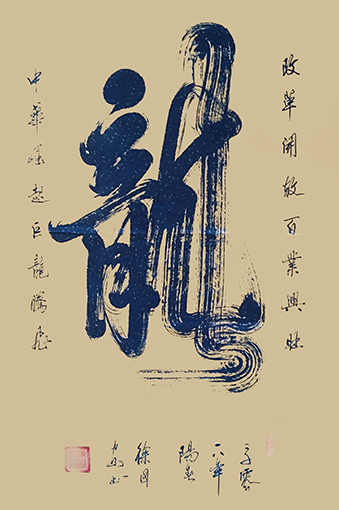 改革開放百業興旺
龍
中華崛起巨龍騰飛
二零
一八年
陽春
徐国